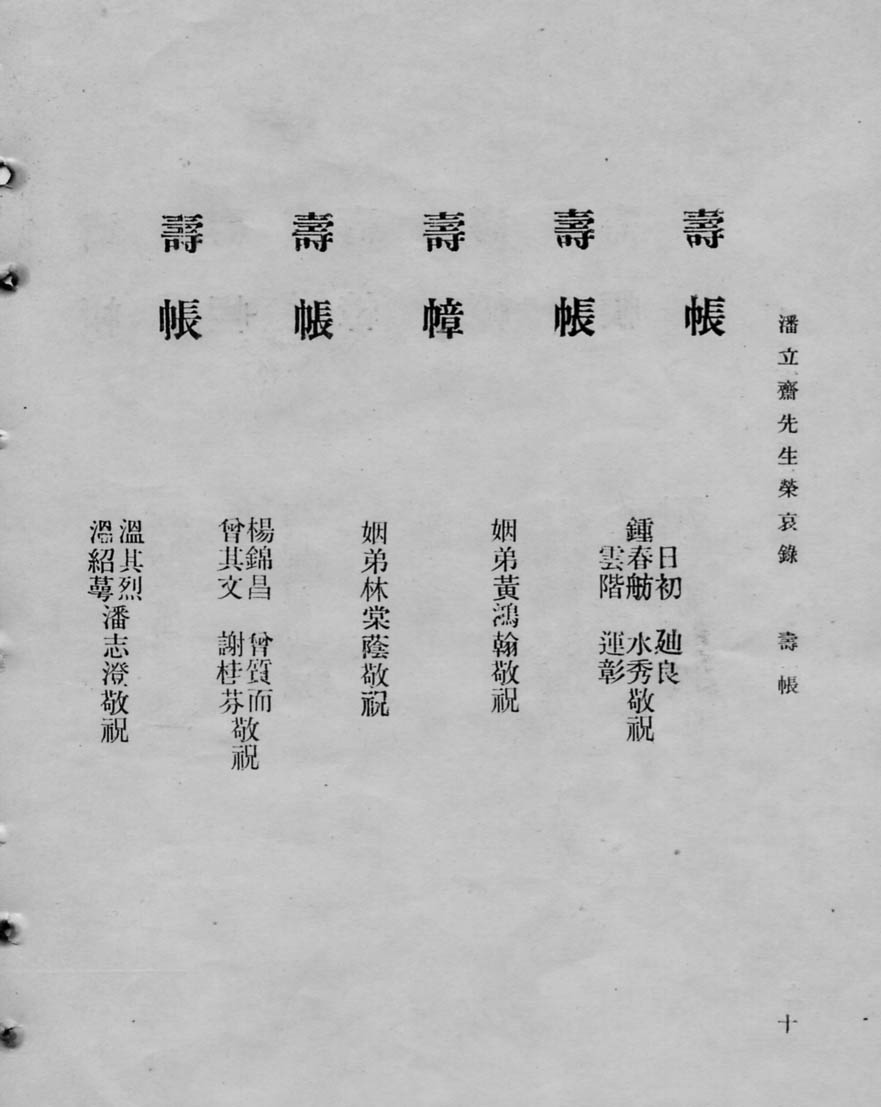 潘立齋先生榮哀錄 壽帳
十
壽帳
日初 廸良
鍾春舫 水秀敬祝
雲階 運彰
壽帳
姻弟黃鴻翰敬祝
壽幛
姻弟林棠蔭敬祝
壽帳
楊錦昌 曾質而
曾其文 謝桂芬敬祝
壽帳
溫其烈
溫紹蕚潘志澄敬祝